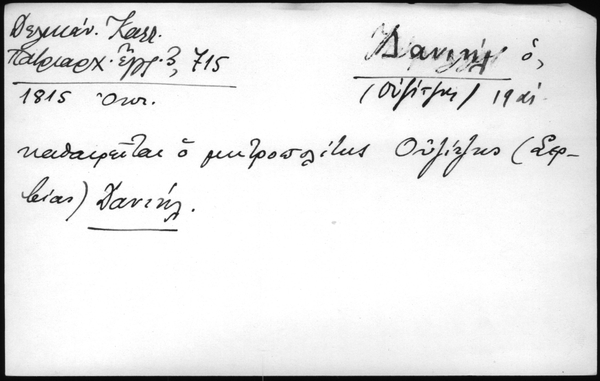 Δελικάν. Καλλ.
Πατριαρχ. ἔγγρ. 3, 715
1815 Ὀκτ.
Δανιὴλ ὁ,
(Οὐζίτζης) 19 αἰ.
καθαιρεῖται ὁ μητροπολίτης Οὐζίτζης (Σερ-
βίας) Δανιήλ.